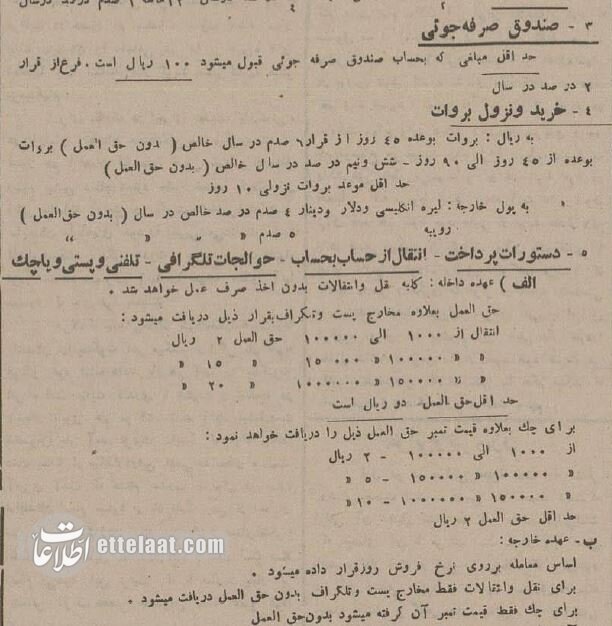 ۳ - صندوق صرفه جوئی
حد اقل مبلغی که بحساب صندوق صرفه جوئی قبول میشود ۱۰۰ ریال است . فرع از قرار
۲ در صد در سال
٤ - خرید و نزول بروات
به ریال : بروات بوعده ٤٥ روز از قرار ٦ صدم در سال خالص ( بدون حق العمل ) بروات
بوعده از ٤٥ روز الی ۹۰ روز - شش ونیم در صد در سال خالص ( بدون حق العمل )
حد اقل موعد بروات نزولی ۱۰ روز
به پول خارجه : لیره انگلیسی ودلار ودینار ٤ صدم در صد خالص در سال ( بدون حق العمل )
روپیه ٥ صدم » » »
٥ - دستورات پرداخت - انتقال از حساب بحساب - حوالجات تلگرافی - تلفنی و پستی و یا چک
الف ) عهده داخله : کلیه نقل وانتقالات بدون اخذ صرف عمل خواهد شد .
حق العمل بعلاوه مخارج پست وتلگراف بقرار ذیل دریافت میشود :
انتقال از ۱۰۰۰ الی ۱۰۰۰۰۰ حق العمل ۲ ریال
» » ۱۰۰۰۰۰ » ۱٥۰۰۰۰ » ۱٥ »
» » ۱٥۰۰۰۰ » ۱۰۰۰۰۰۰ » ۲۰ »
حد اقل حق العمل دو ریال است
برای چک بعلاوه قیمت تمبر حق العمل ذیل را دریافت خواهد نمود :
از ۱۰۰۰ الی ۱۰۰۰۰۰ - ۲ ریال
» ۱۰۰۰۰۰ » ۱٥۰۰۰۰ - ٥ »
» ۱٥۰۰۰۰ » ۱۰۰۰۰۰۰ - ۱۰ »
حد اقل حق العمل ۲ ریال
ب - عهده خارجه :
اساس معامله برروی نرخ فروش روز قرار داده میشود .
برای نقل وانتقالات فقط مخارج پست وتلگراف بدون حق العمل دریافت میشود .
برای چک فقط قیمت تمبر آن گرفته میشود بدون حق العمل
اطلاعات ettelaat.com